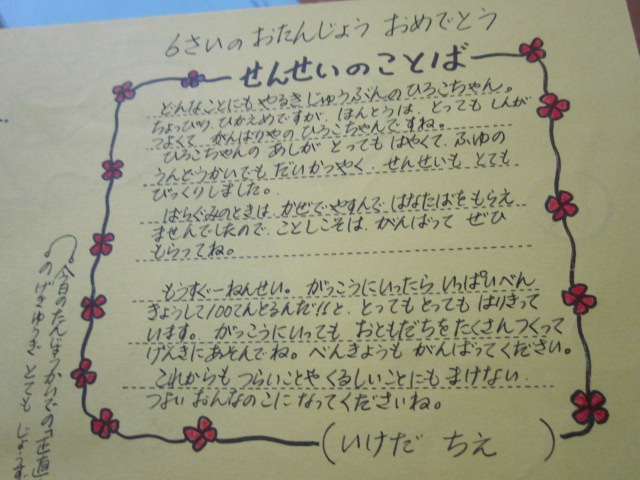 6さいの おたんじょう おめでとう
せんせいのことば
どんなことにも やるき じゅうぶんの ひろこちゃん。
ちょっぴり ひかえめですが、ほんとうは、とっても しんが
つよくて がんばりやの ひろこちゃんですね。
ひろこちゃんの あしが とっても はやくて、ふゆの
うんどうかいでも だいかつやく せんせいも とても
びっくりしました。
ばらぐみのときは、かぜで やすんで はなたばを もらえ
ませんでしたので、ことしこそは、がんばって ぜひ
もらってね。
もうすぐ一ねんせい。がっこうにいったら いっぱいべん
きょうして100てんとるんだ!!と、とっても とっても はりきって
います。がっこうにいっても おともだちを たくさんつくって
げんきに あそんでね。べんきょうも がんばってください。
これからも つらいことや くるしいことにも まけない
つよい おんなのこに なってくださいね。
(いけだ ちえ)
今日のたんじょうかいでの
のげきゆうぎ とても じょうず